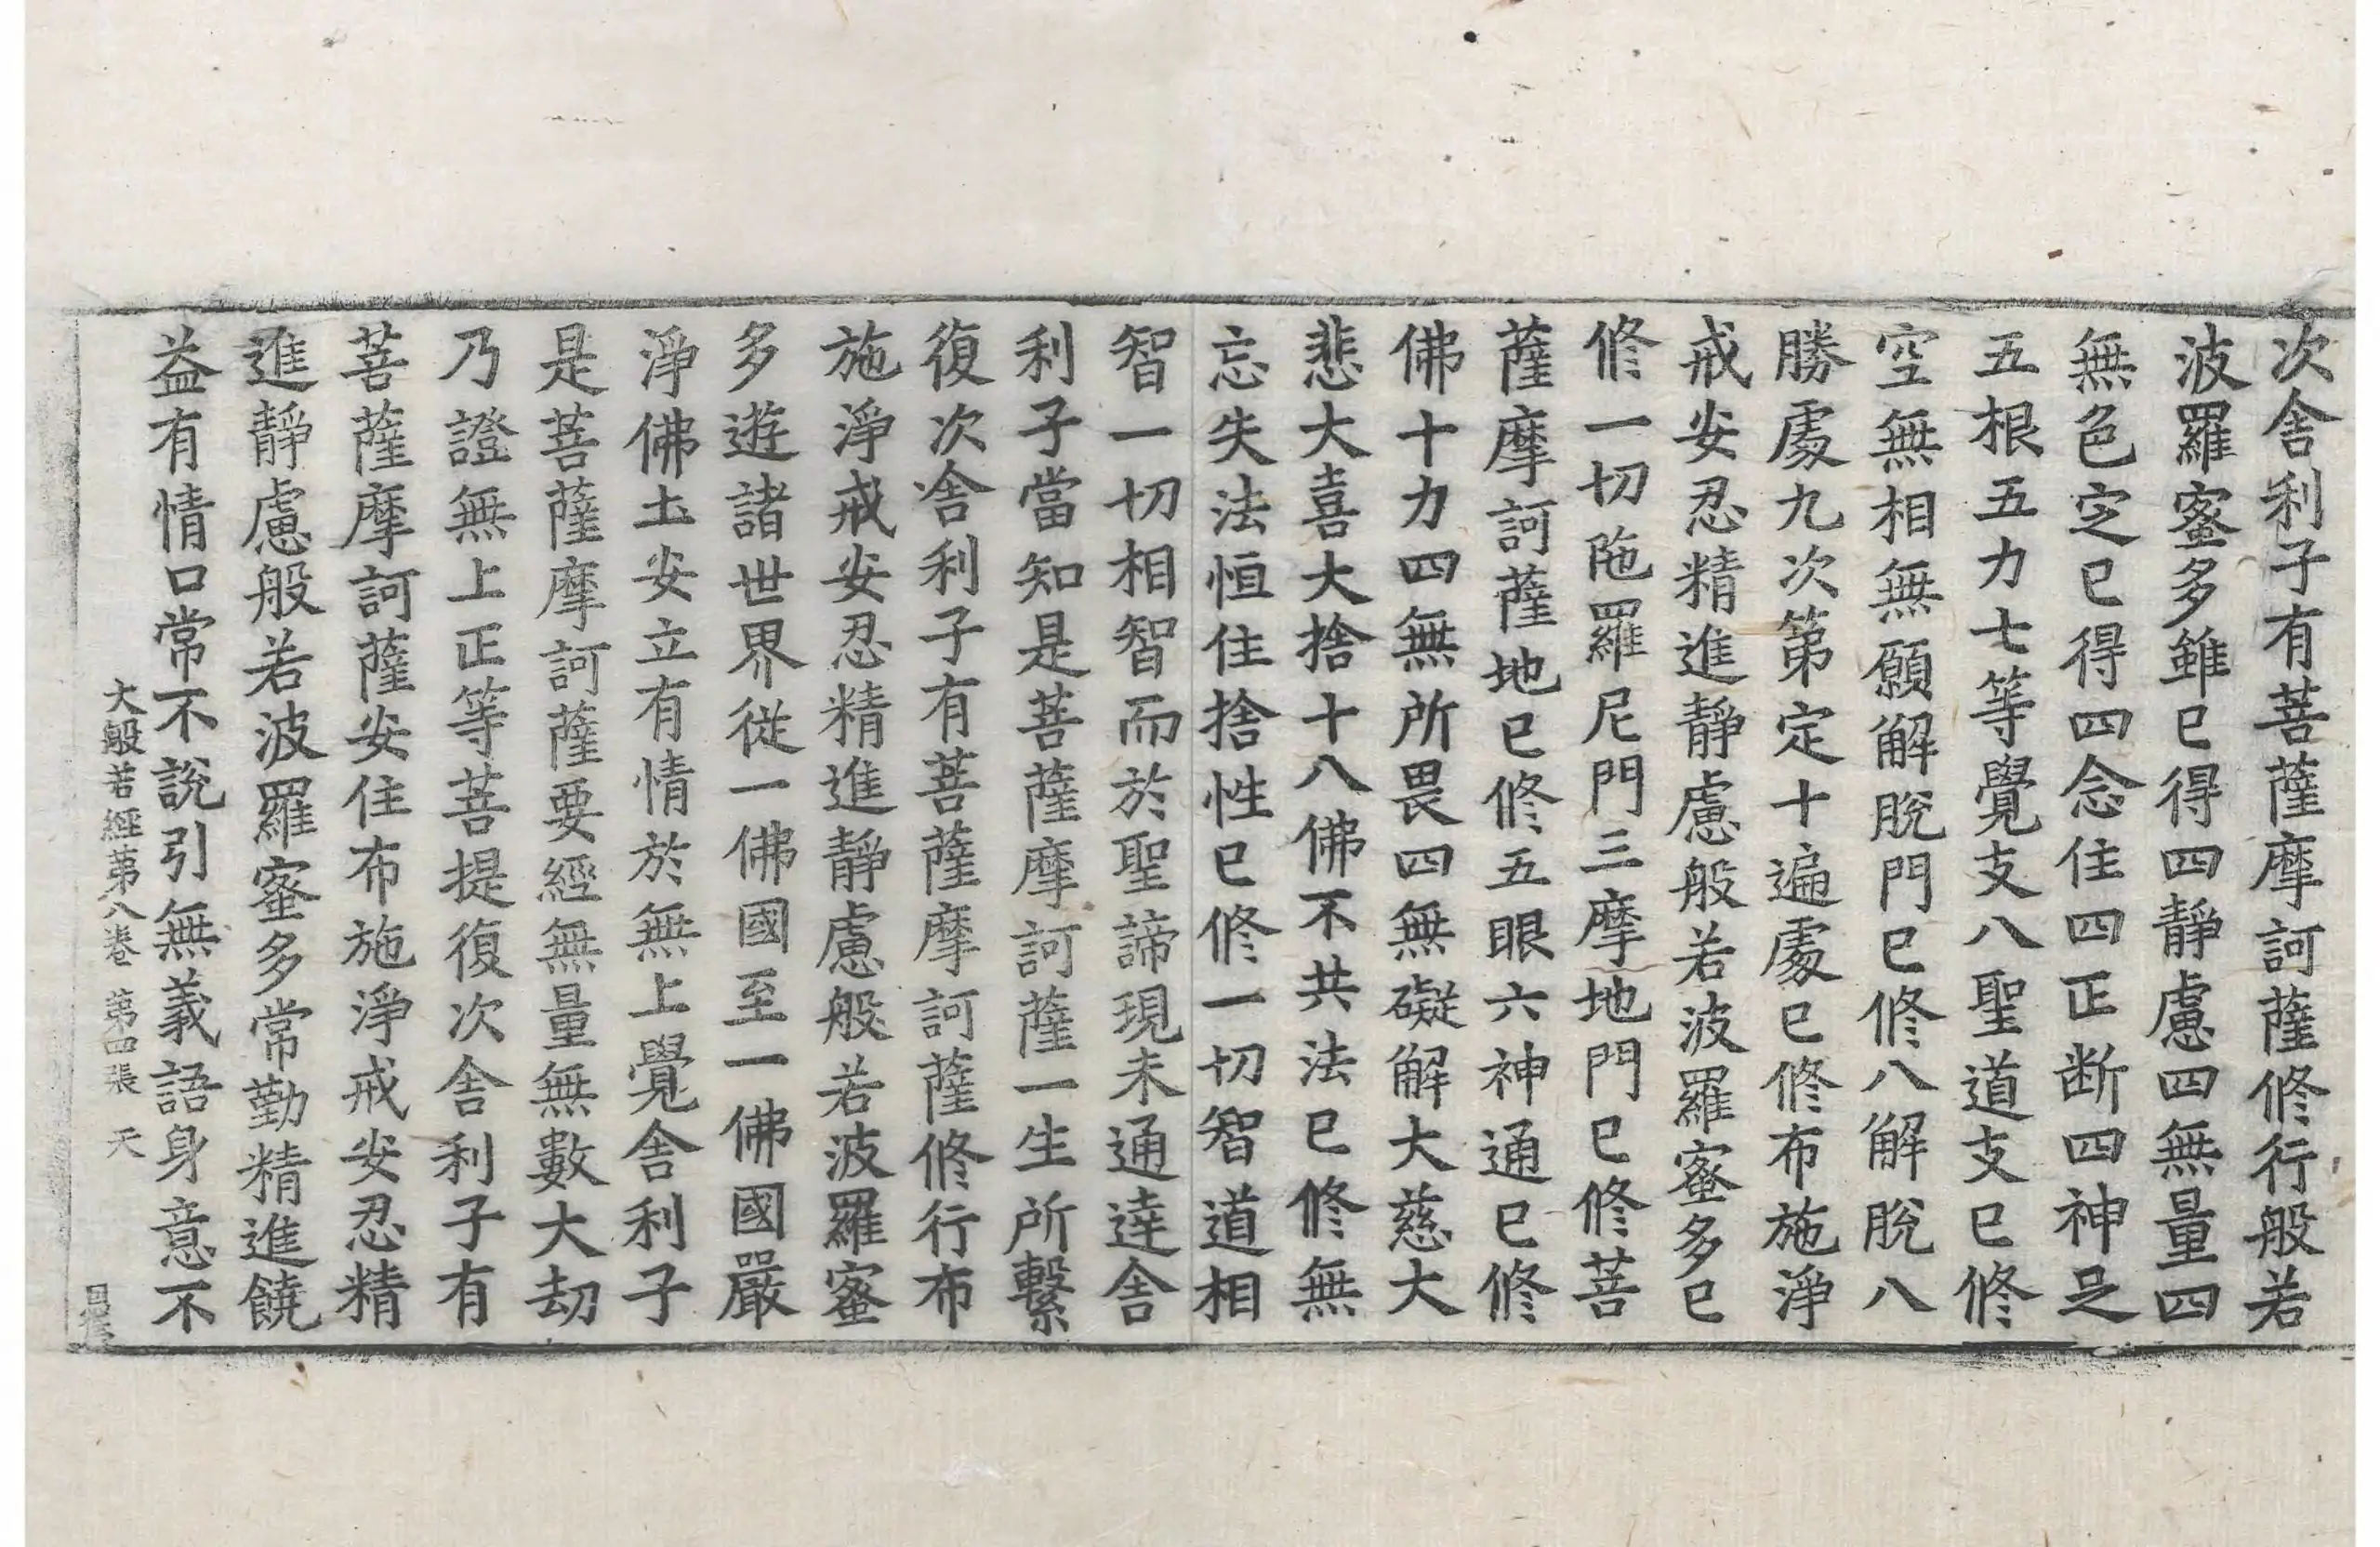 次舍利子有菩薩摩訶薩修行般若
波羅蜜多雖已得四靜慮四無量四
無色定已得四念住四正断四神足
五根五力七等覺支八聖道支已修
空無相無願解脫門已修八解脫八
勝處九次第定十遍處已修布施淨
戒安忍精進靜慮般若波羅蜜多已
修一切陁羅尼門三摩地門已修菩
薩摩訶薩地已修五眼六神通已修
佛十力四無所畏四無礙解大慈大
悲大喜大捨十八佛不共法已修無
忘失法恒住捨性已修一切智道相
智一切相智而於聖諦現未通達舍
利子當知是菩薩摩訶薩一生所繫
復次舍利子有菩薩摩訶薩修行布
施淨戒安忍精進靜慮般若波羅蜜
多遊諸世界從一佛國至一佛國嚴
淨佛土安立有情於無上覺舍利子
是菩薩摩訶薩要經無量無數大劫
乃證無上正等菩提復次舍利子有
菩薩摩訶薩安住布施淨戒安忍精
進靜慮般若波羅蜜多常勤精進饒
益有情口常不說引無義語身意不
大般若經第八卷 第四張 天